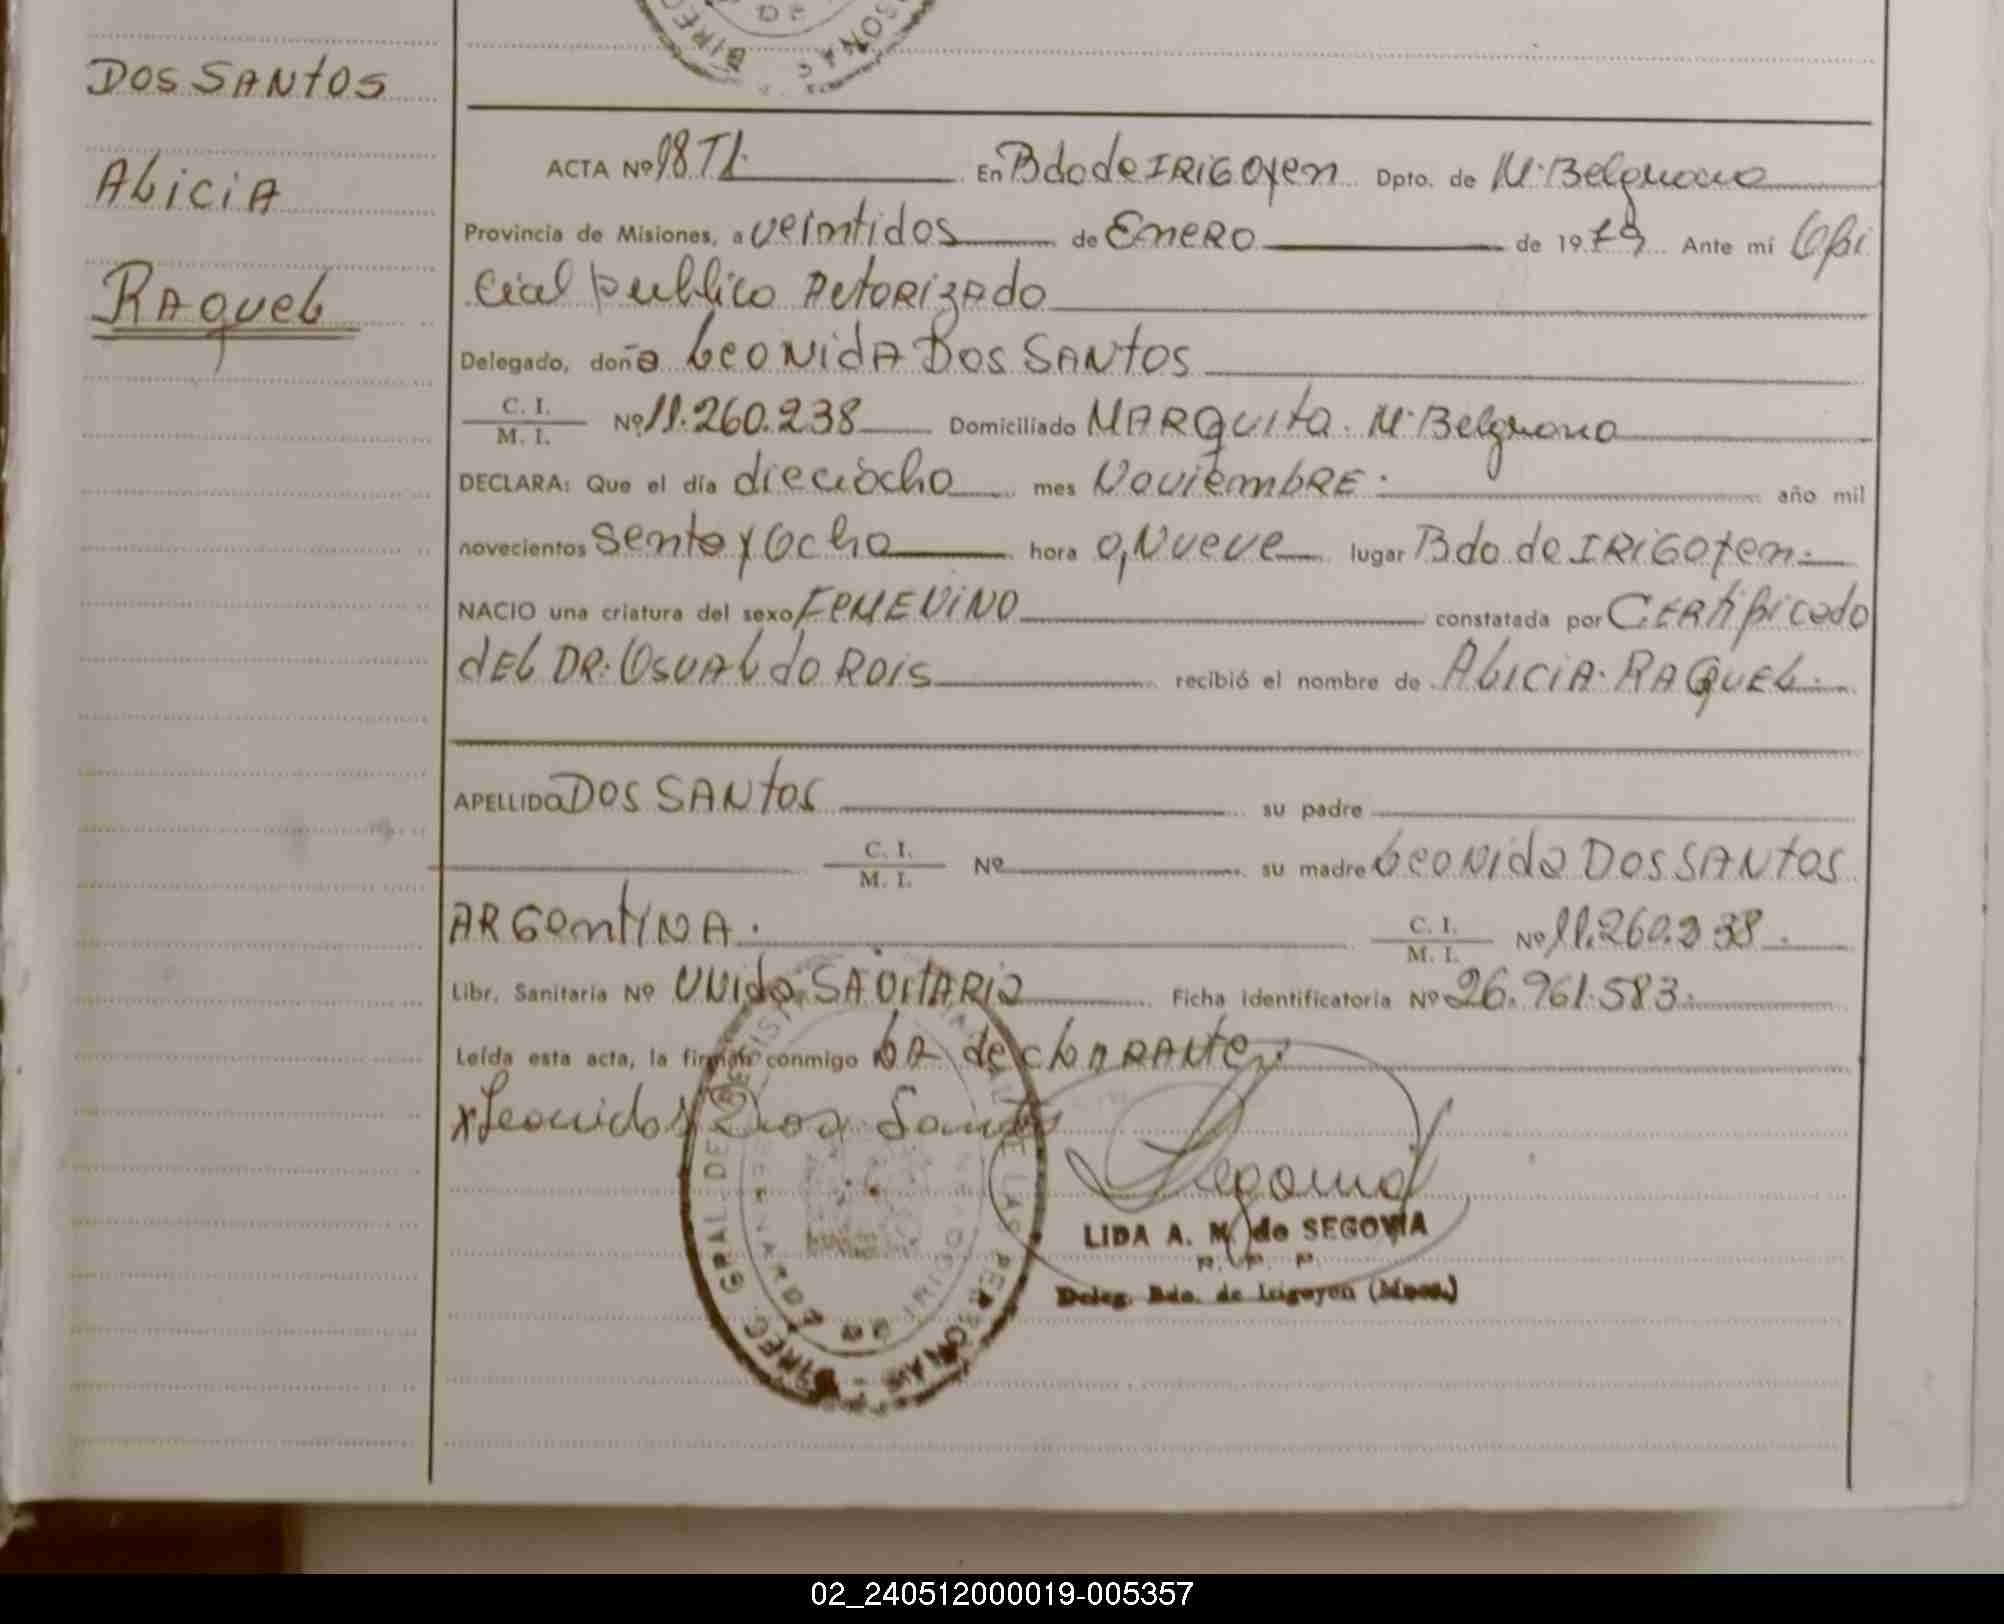 DOS SANTOS
ALiCiA
RAqueL
ACTA Nº 18 T1. En Bdo de IRIGOYEN Dpto. de M. Belgrano
Provincia de Misiones, a veintidos de ENERO de 1979 Ante mí Ofi
cial publico AUtORizAdo
Delegado, doña LEONidA DOS SANTOS
C. I.
M. I. Nº 11.260.238 Domiciliado MARquita. M. Belgrano
DECLARA: Que el día dieciocho mes NoviembRE. año mil
novecientos sento y ocho hora 0,Nueve lugar Bdo de IRIGOYEN.
NACIO una criatura del sexo FEMENiNO constatada por CERtificado
dEL DR. OSUALdo ROIS recibió el nombre de ALICiA. RAQUEL.
APELLIDO DOS SANTOS su padre
C. I.
M. I. Nº su madre LEONidA DOS SANTOS
ARGENtiNA. C. I.
M. I. Nº 11.260.238.
Libr. Sanitaria Nº UNida SANitARiA Ficha identificatoria Nº 26.961.583.
Leída esta acta, la firman conmigo LA decLARANte.
x Leonidos Dos Santos
Segovia
LIDA A. M. de SEGOVIA
Deleg. Bdo. de Irigoyen (Mnes.)
DIREC. GRAL. DE REGISTRO DE LAS PERSONAS
02_240512000019-005357